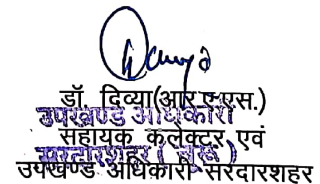 डॉ. दिव्या(आर.ए.एस.)
उपखण्ड अधिकारी
सहायक कलेक्टर एवं
सरदारशहर ( चूरू )
उपखण्ड अधिकारी सरदारशहर